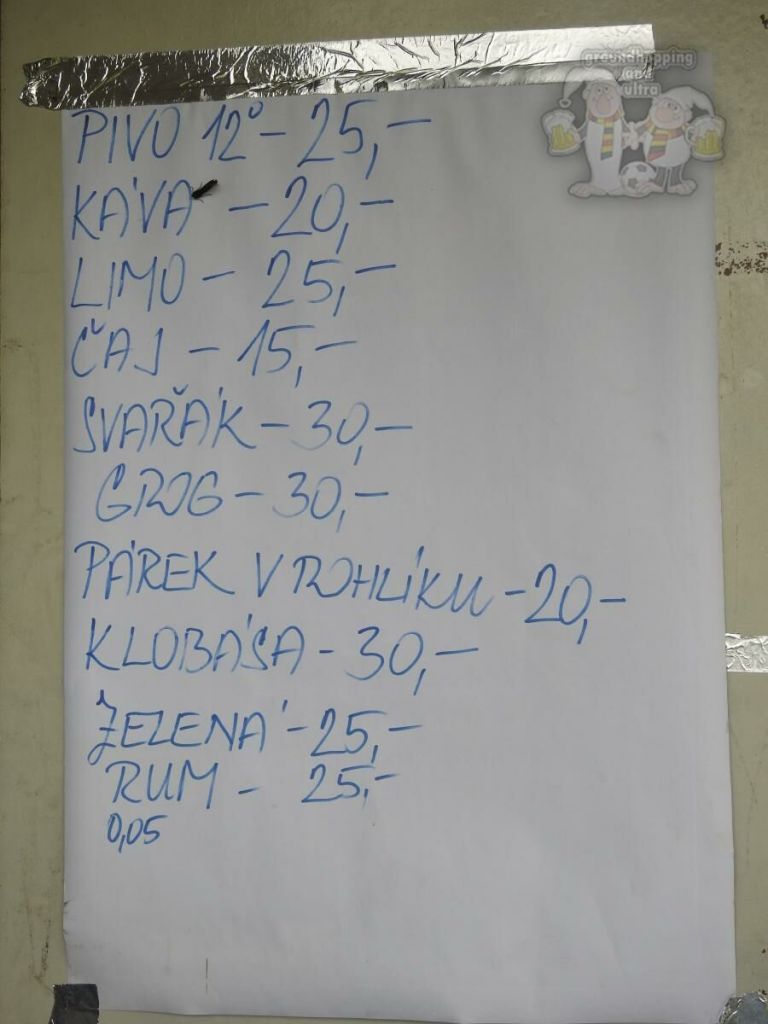 groundhopping
and
ultra
PIVO 12° - 25,-
KÁVA - 20,-
LIMO - 25,-
ČAJ - 15,-
SVAŘÁK - 30,-
GROG - 30,-
PÁREK V ROHLÍKU - 20,-
KLOBÁSA - 30,-
ZELENÁ - 25,-
RUM - 25,-
0,05